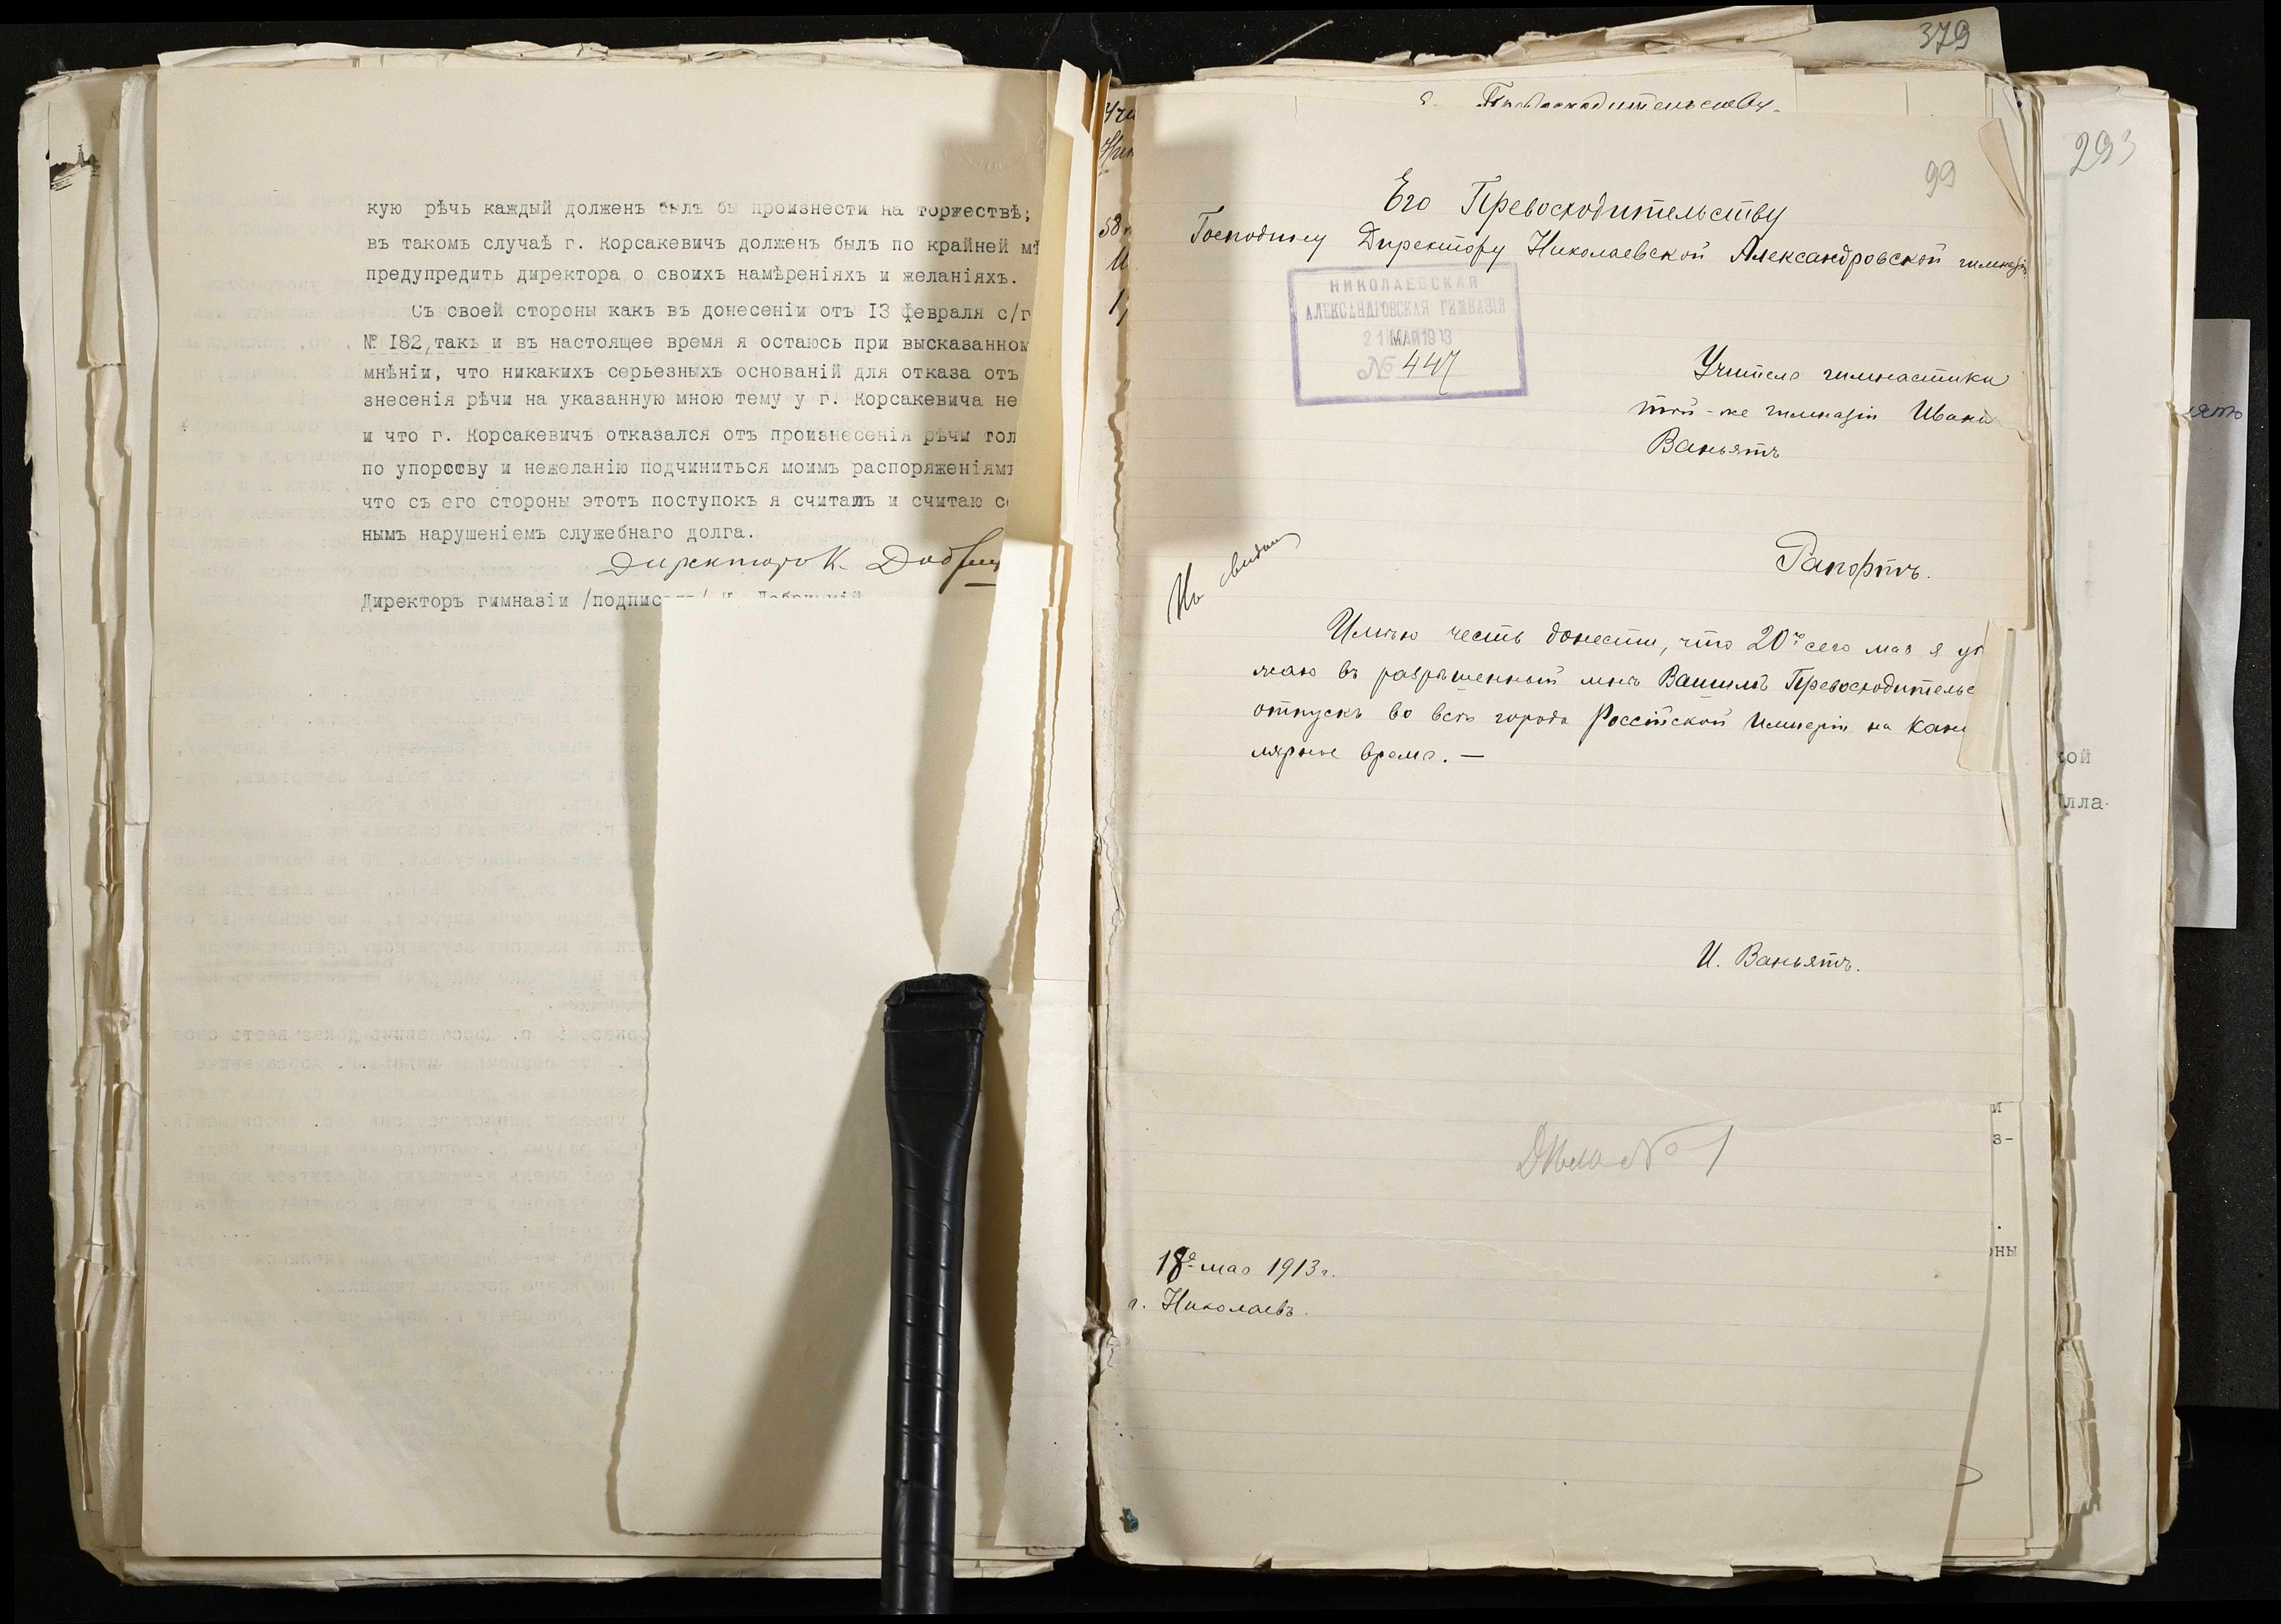 кую рѣчь каждый долженъ былъ бы произнести на торжествѣ;
въ такомъ случаѣ г. Корсакевичъ долженъ былъ по крайней мѣ
предупредить директора о своихъ намѣреніяхъ и желаніяхъ.
Съ своей стороны какъ въ донесеніи отъ I3 февраля с/г
№ I82,такъ и въ настоящее время я остаюсь при высказанном
мнѣніи, что никакихъ серьезныхъ основаній для отказа отъ
знесенія рѣчи на указанную мною тему у г. Корсакевича не
и что г. Корсакевичъ отказался отъ произнесенія рѣчи тол
по упорству и нежеланію подчиниться моимъ распоряженіямъ
что съ его стороны этотъ поступокъ я считалъ и считаю с
нымъ нарушеніемъ служебнаго долга.
Директоръ К.
Директоръ гимназіи /подпис
379
293
99
Его Превосходительству
Господину Директору Николаевской Александровской гимназіи
НИКОЛАЕВСКАЯ
АЛЕКСАНДРОВСКАЯ ГИМНАЗІЯ
21 МАЯ 1913
№ 447
Учителя гимнастики
той-же гимназіи Ивана
Ваньятъ
Рапортъ.
Имѣю честь донести, что 20го сего мая я уѣ
жаю въ разрѣшенный мнѣ Вашимъ Превосходительс
отпускъ во всѣ города Россійской Имперіи на кани
лярное время. —
И. Ваньятъ.
Дѣло № 1
18го мая 1913 г.
г. Николаевъ.
кой
лла-
з-
ны